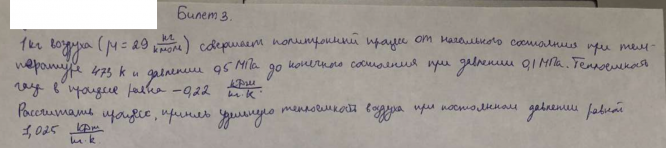 Билет 3.
1 кг воздуха (μ = 29 кг/кмоль) совершает политропный процесс от начального состояния при тем-
пературе 473 К и давлении 0,5 МПа до конечного состояния при давлении 0,1 МПа. Теплоёмкость
газа в процессе равна -0,22 кДж/кг·К.
Рассчитать процесс, приняв удельную теплоёмкость воздуха при постоянном давлении равной
1,025 кДж/кг·К